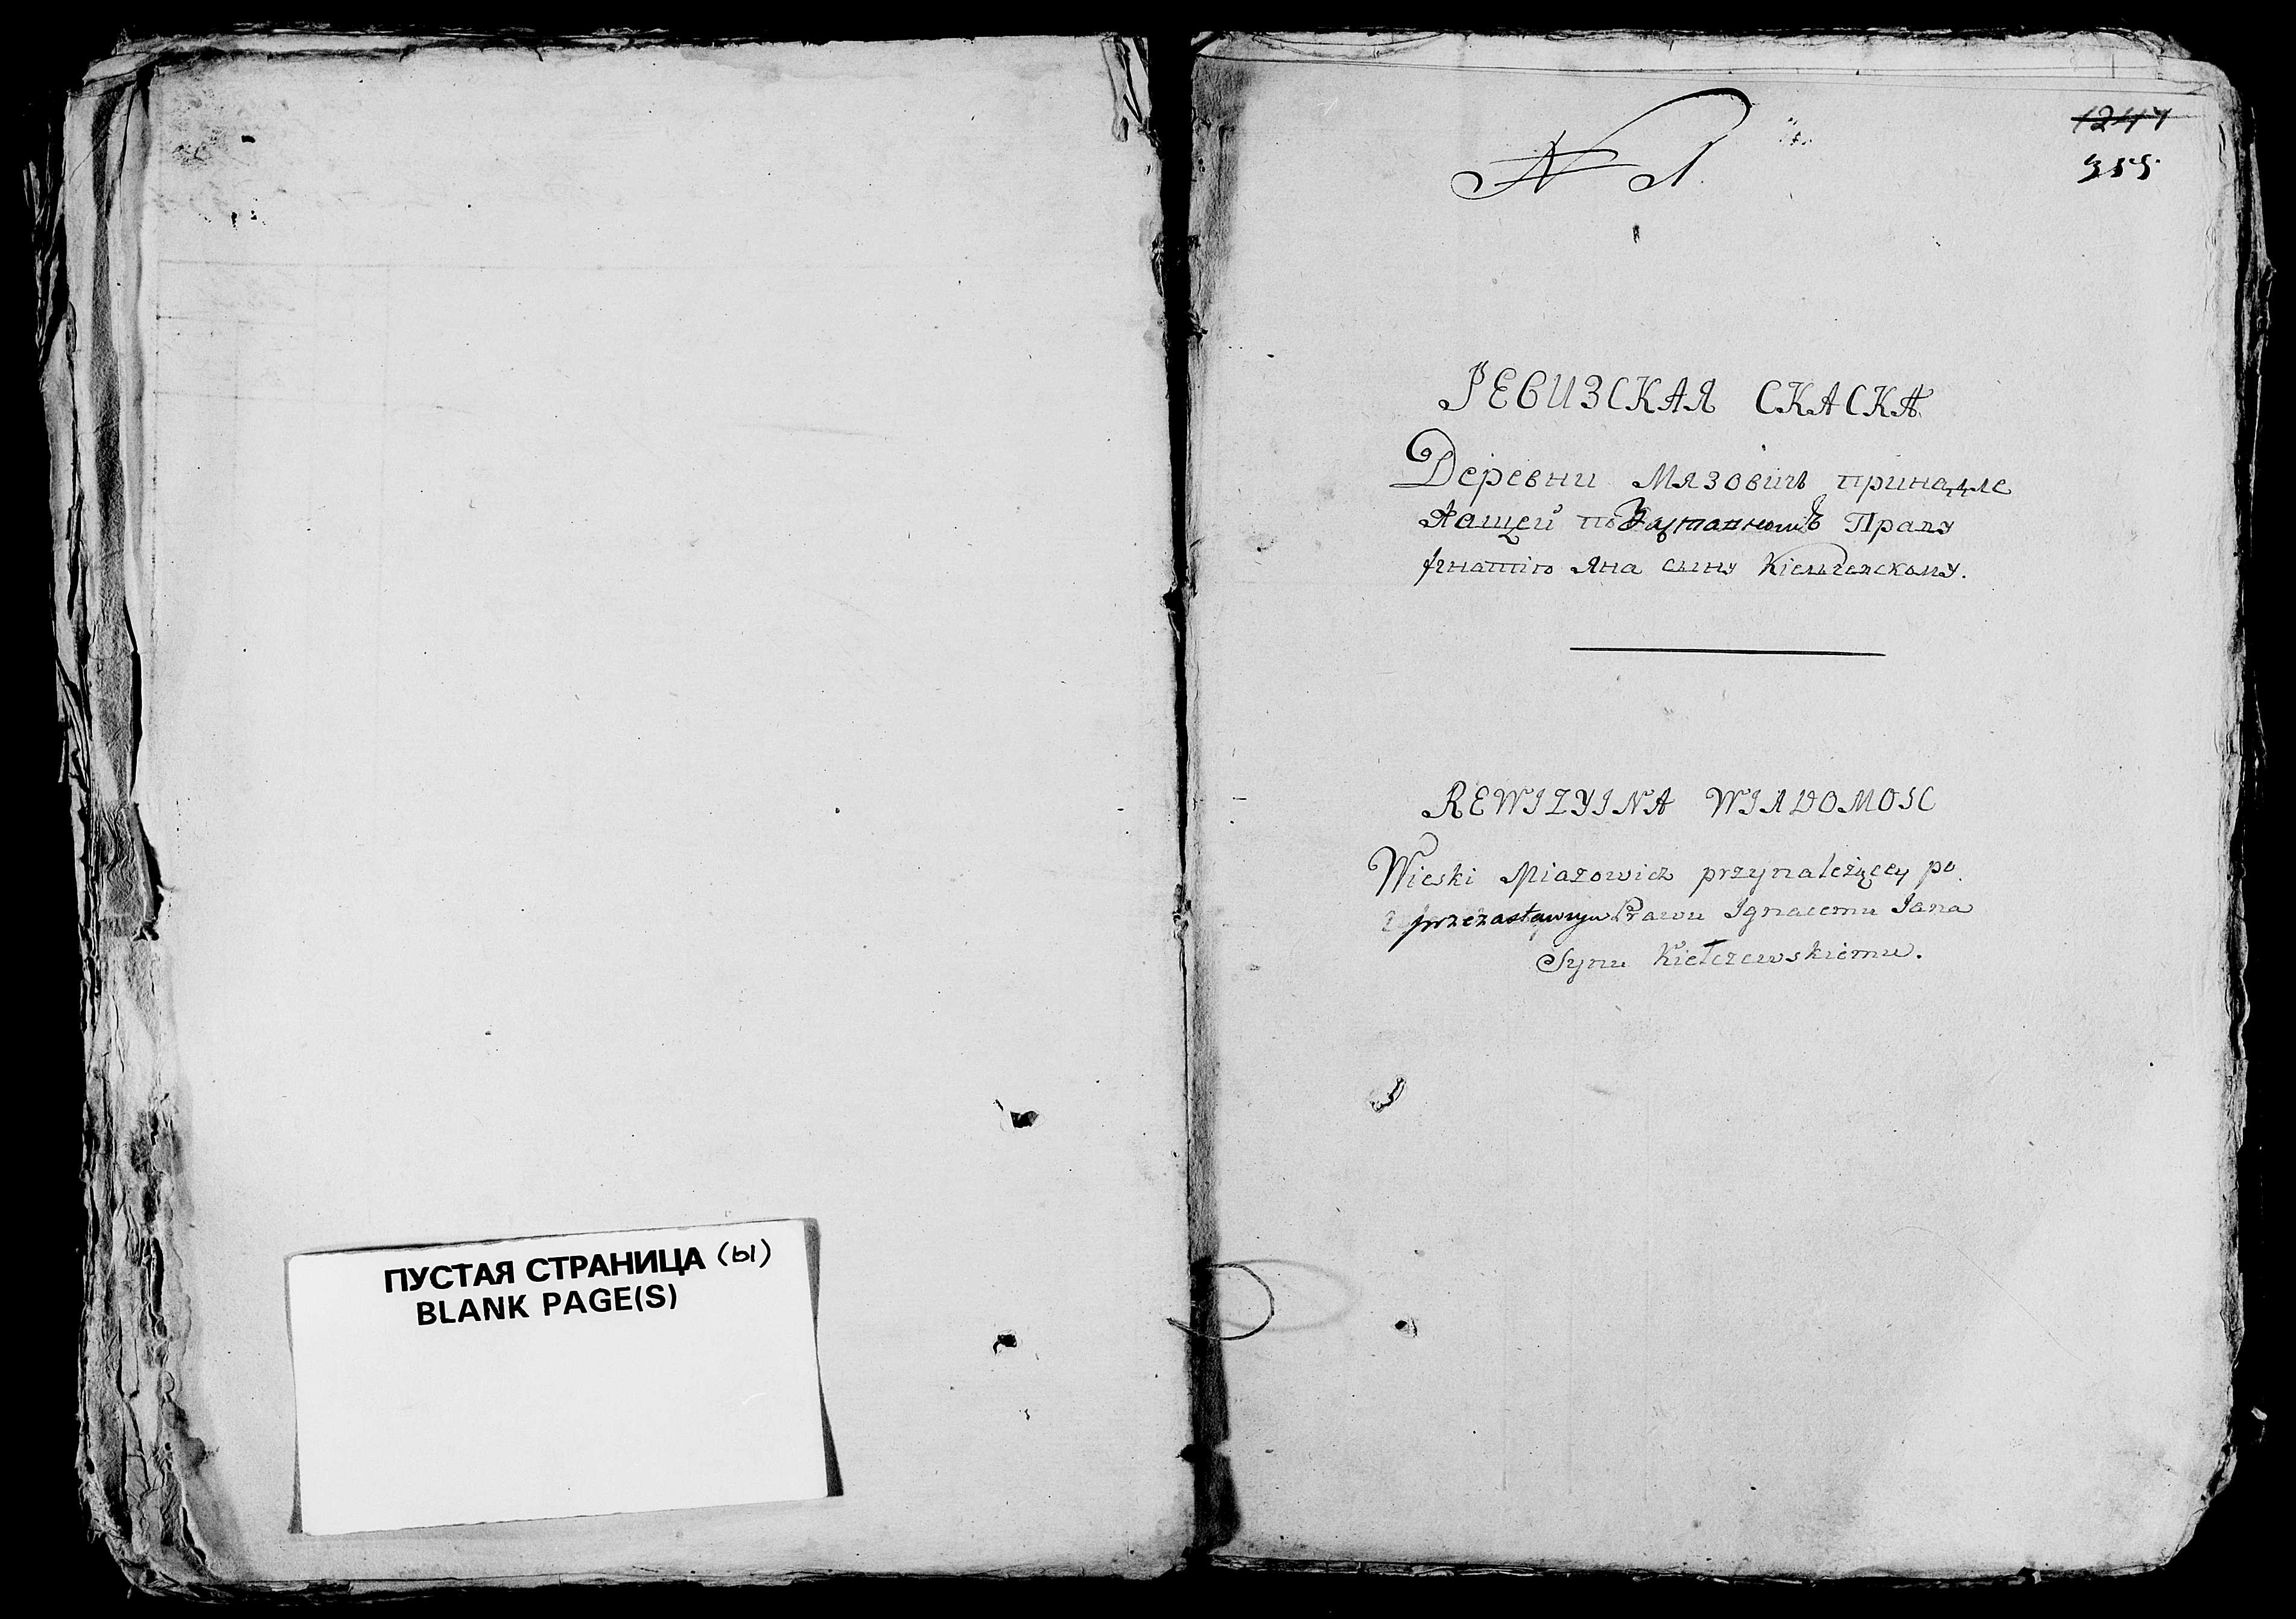 ПУСТАЯ СТРАНИЦА (ы)
BLANK PAGE(S)
N 1.
1244
355
РЕВИЗСКАЯ СКАСКА
Деревни Мязовичъ принадле
жащей по Праву
Игнатiю Яна сыну Кiелчевскому.
REWIZYINA WIADOMOSC
Wioski Miazowicz przynależącey po
przezastawnym Prawu Ignacemu Jana
Synu Kiełczewskiemu.